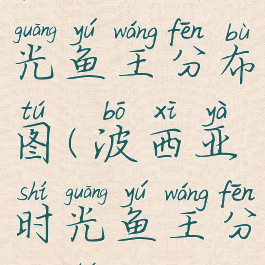 guāng yú wáng fēn bù
光鱼王分布
tú bō xī yà
图(波西亚
shí guāng yú wáng fēn
时光鱼王分